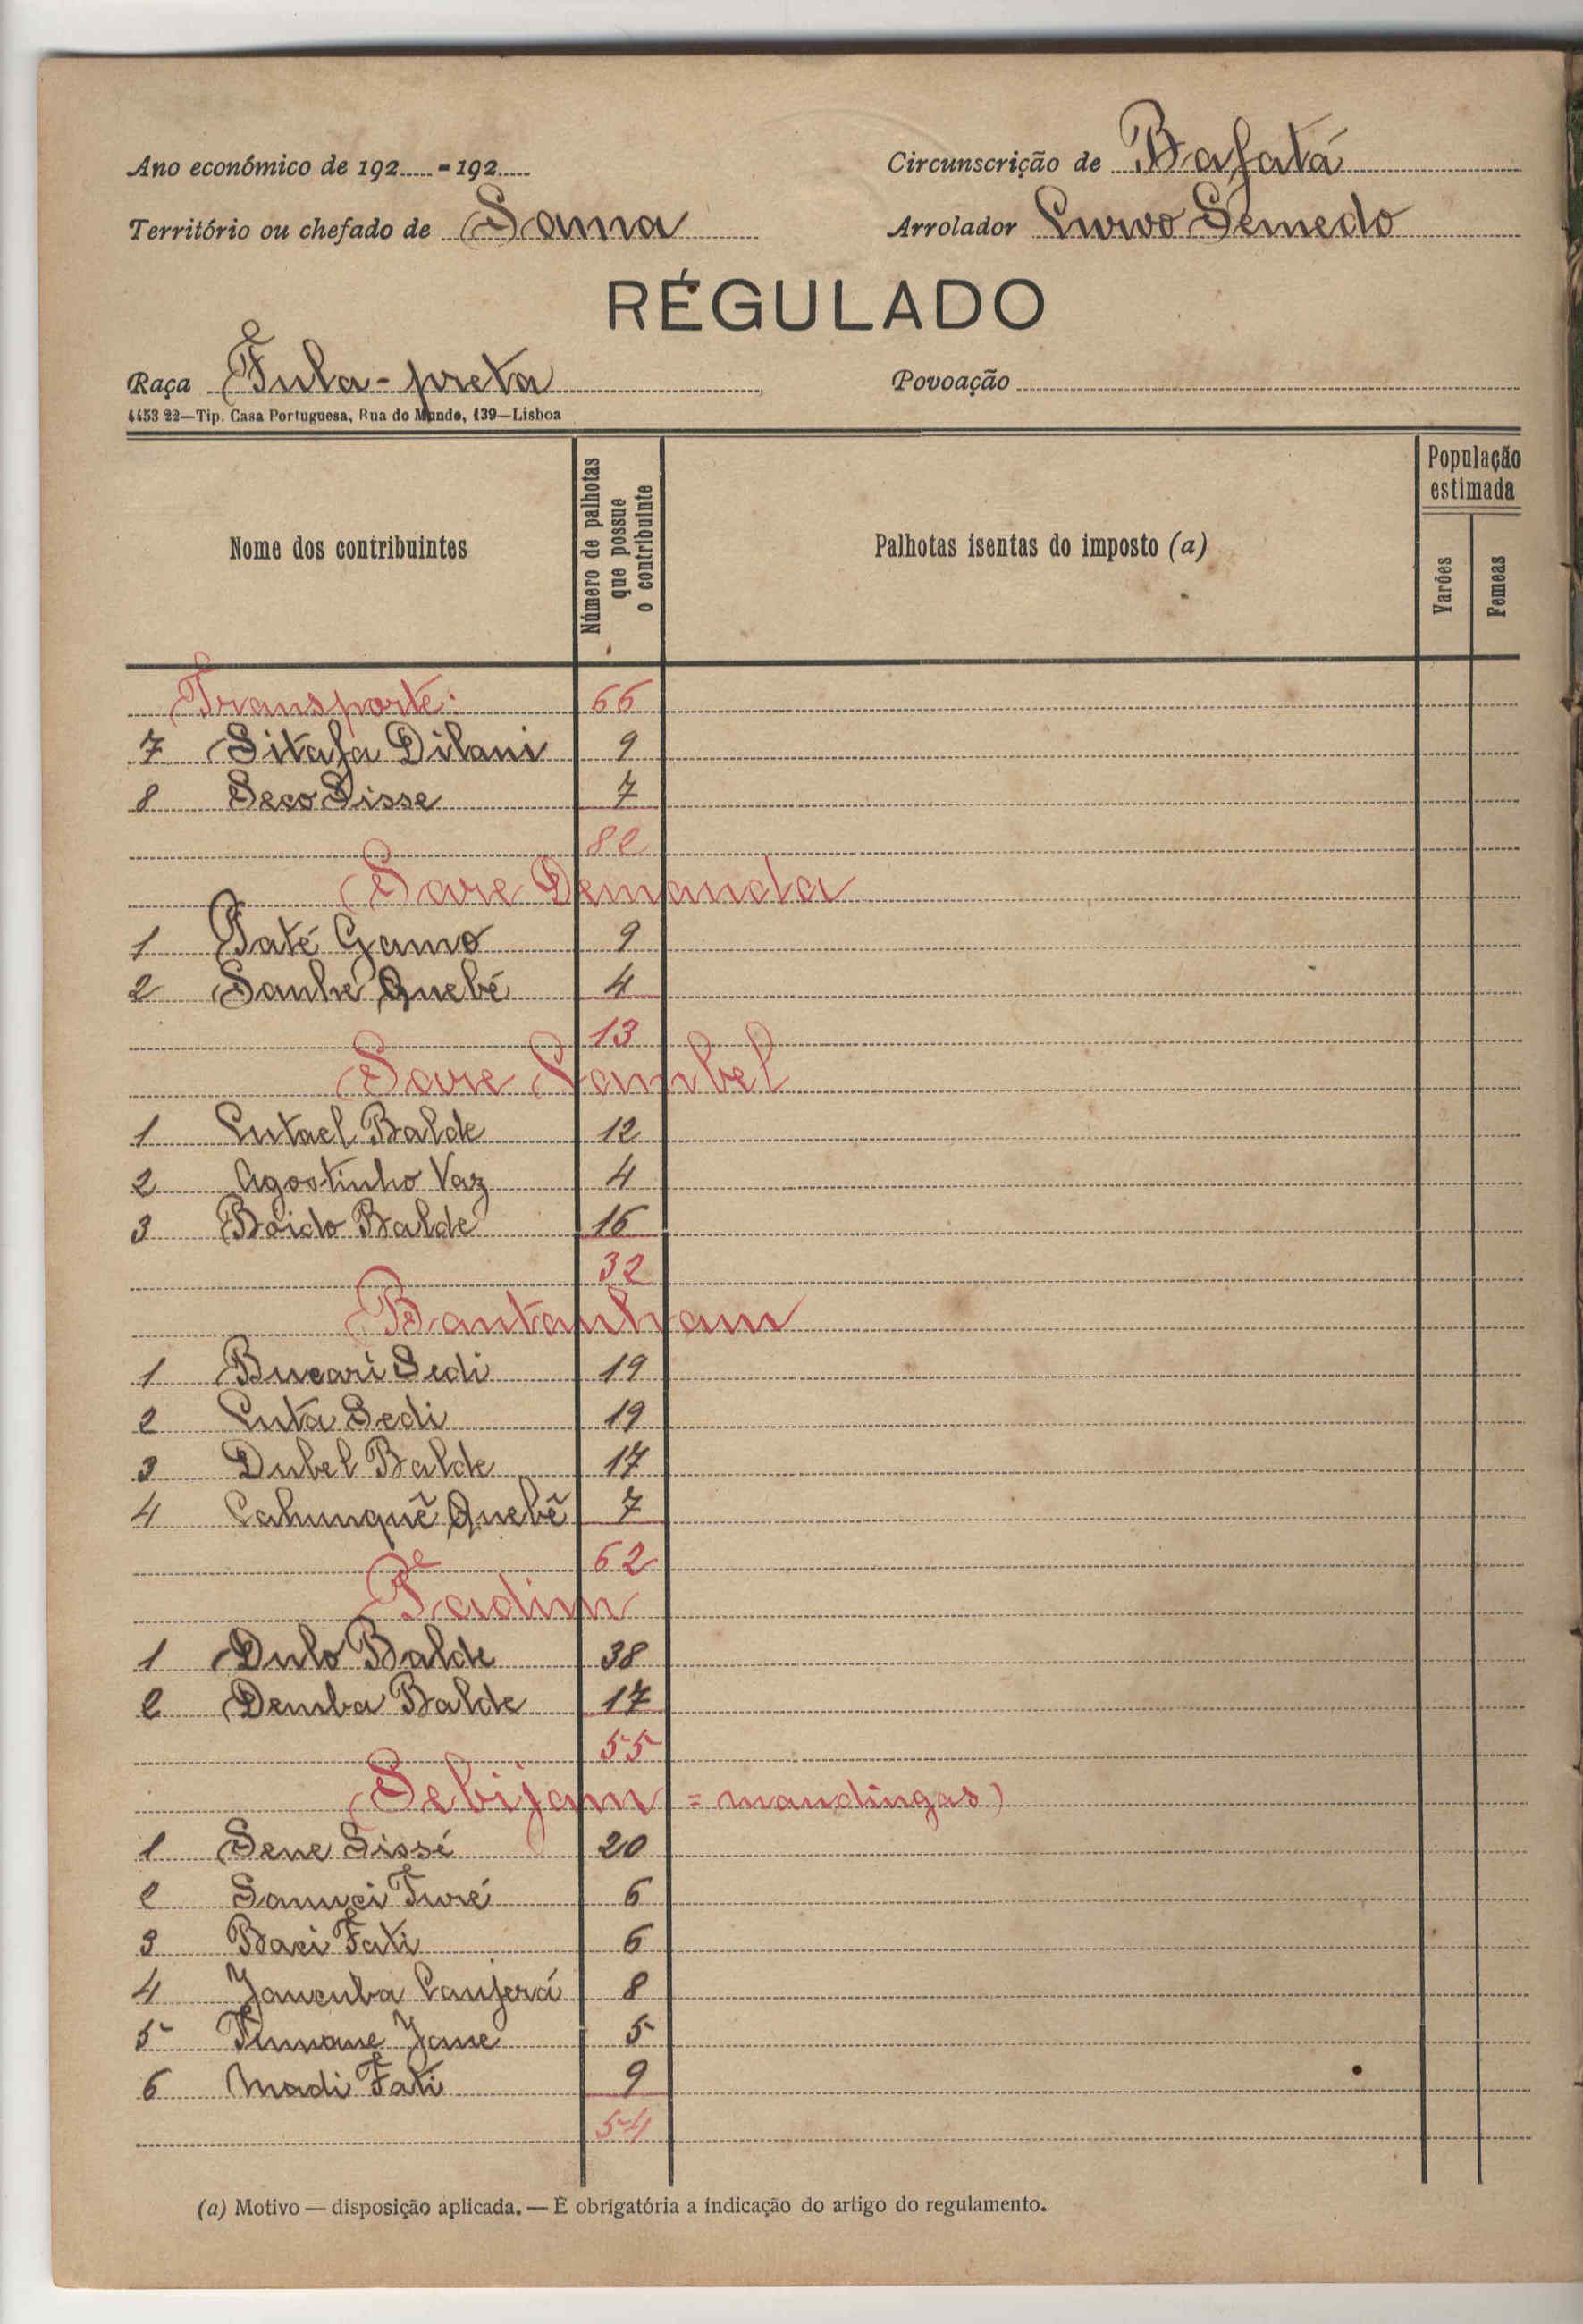 Ano económico de 192.....-192.....
Circunscrição de Bafatá
Território ou chefado de Sama
Arrolador Curvo Semedo
RÉGULADO
Raça Fula-preta
Povoação
4453 22—Tip. Casa Portuguesa, Rua do Mundo, 139—Lisboa
Nome dos contribuintes
Número de palhotas que possue o contribuinte
Palhotas isentas do imposto (a)
População estimada
Varões
Femeas
Transporte: 66
7 Sitafa Dilani 9
8 Seco Sisse 7
82
Sare Demanda
1 Paté Gamo 9
2 Sanhe Quebé 4
13
Sare Sambel
1 Cutael Balde 12
2 Agostinho Vaz 4
3 Boido Balde 16
32
Bantanham
1 Bucari Sedi 19
2 Cuta Sedi 19
3 Dubel Balde 17
4 Cahunquẽ Quebẽ 7
62
Padim
1 Dulo Balde 38
2 Demba Balde 17
55
Sebijam = mandingas)
1 Sene Sissé 20
2 Turé 6
3 Baci Fati 6
4 Jancuba Canjerá 8
5 Tumane Jane 5
6 Madi Fati 9
54
(a) Motivo — disposição aplicada. — É obrigatória a indicação do artigo do regulamento.